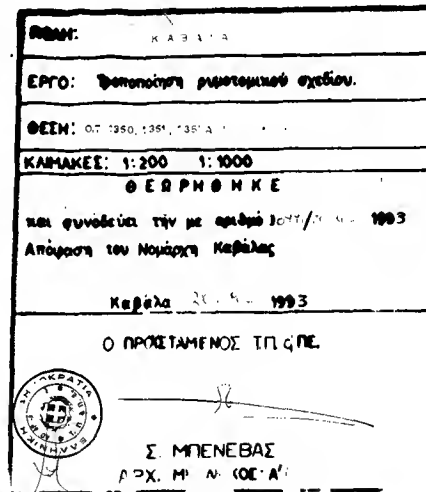 ΠΟΛΗ: ΚΑΒΑΛΑ
ΕΡΓΟ: Τροποποίηση ρυμοτομικού σχεδίου.
ΘΕΣΗ: Ο.Τ. 1350, 1351, 1351Α
ΚΛΙΜΑΚΕΣ: 1:200 1:1000
ΘΕΩΡΗΘΗΚΕ
και συνοδεύει τήν με αριθμό 1993
Απόφαση του Νομάρχη Καβάλας
Καβάλα 1993
Ο ΠΡΟΪΣΤΑΜΕΝΟΣ Τ.Π. & ΠΕ.
ΕΛΛΗΝΙΚΗ ΔΗΜΟΚΡΑΤΙΑ
Σ. ΜΠΕΝΕΒΑΣ
ΑΡΧ. ΜΗ